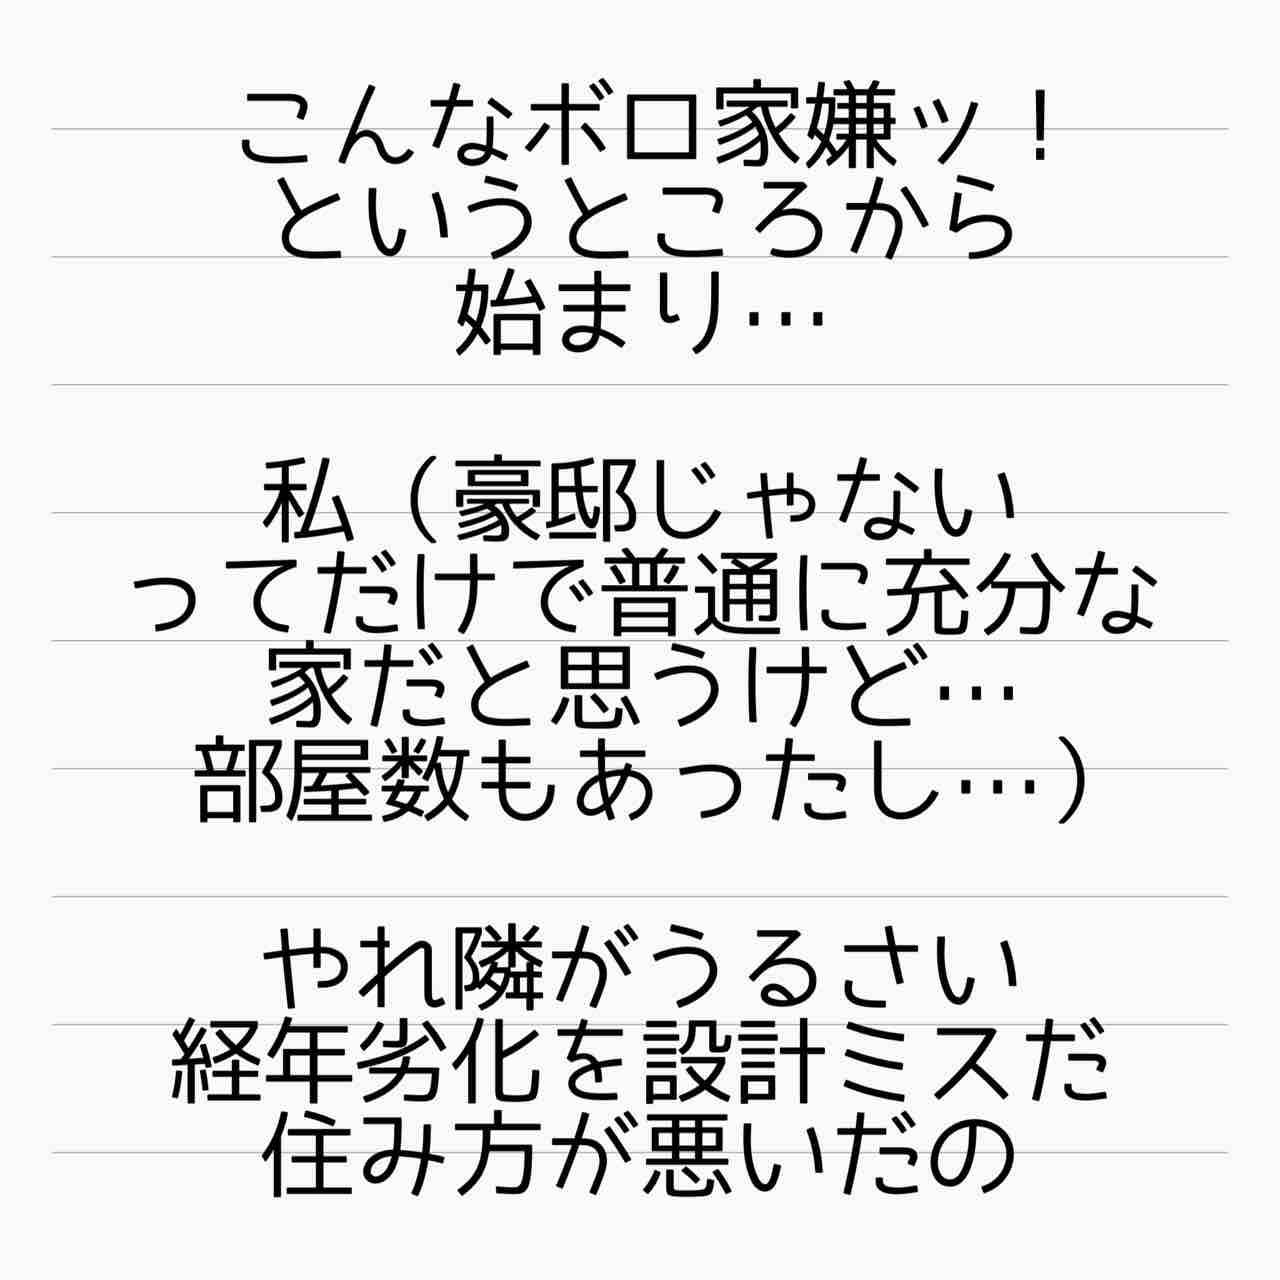 こんなボロ家嫌ッ！
というところから
始まり…
私（豪邸じゃない
ってだけで普通に充分な
家だと思うけど…
部屋数もあったし…）
やれ隣がうるさい
経年劣化を設計ミスだ
住み方が悪いだの